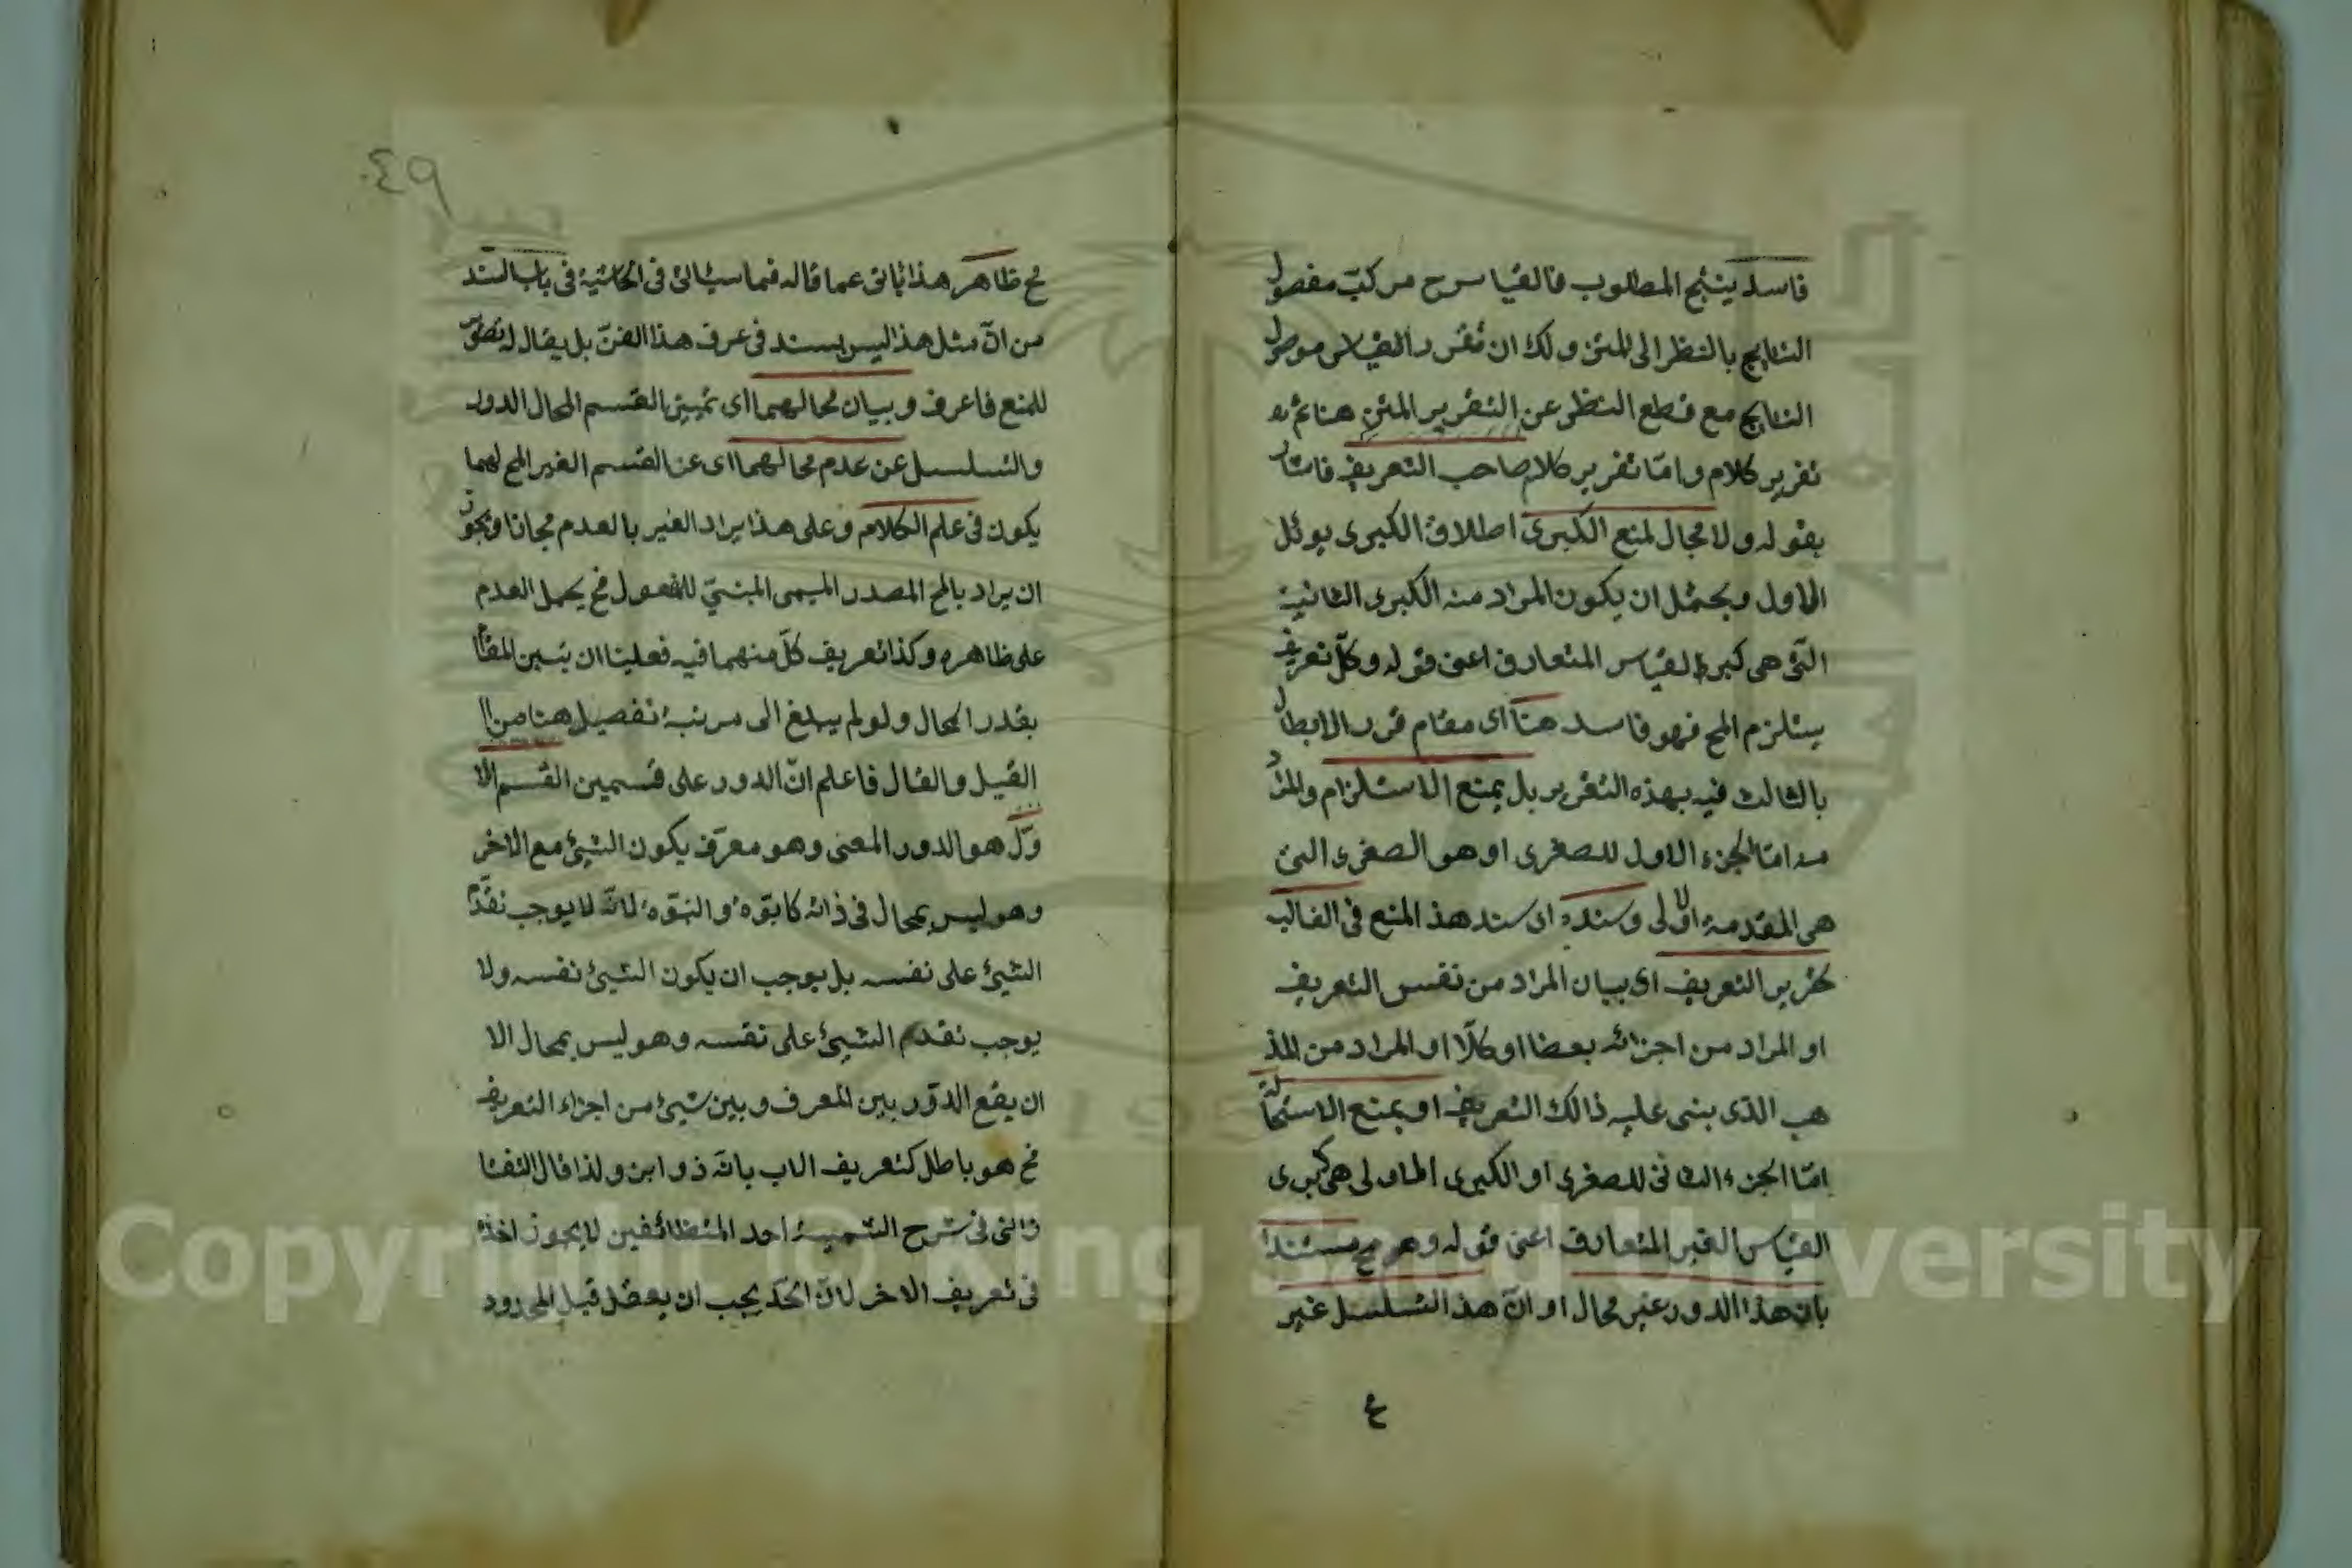 فاسد ينتج المطلوب فالقياس ح مركب مفصول
النتايج بالنظر الى المتن ولك ان تقرر القياس موصول
النتايج مع قطع النظر عن التقرير المتن هنا ثم
تقرير كلام واما تقرير كلام صاحب التعريف فاشار
بقوله ولا مجال لمنع الكبرى اطلاق الكبرى يوئل
الاول ويحتمل ان يكون المراد منه الكبرى الثانية
التى هى كبرى القياس المتعارف اعنى قوله وكل تعريف
يستلزم المح فهو فاسد هنا اى مقام قرر الابطال
بالثالث فيه بهذه التقرير بل يمنع الاستلزام والمراد
منه اما الجزء الاول للصغرى او هو الصغرى التى
هى المقدمة الاولى وسنده اى سند هذا المنع فى الغالب
تحرير التعريف اى بيان المراد من نفس التعريف
او المراد من اجزائه بعضا او كلا او المراد من المذ
هب الذى بنى عليه ذالك التعريف او يمنع الاستحالة
اما الجزء الثانى للصغرى او الكبرى الاولى هى كبرى
القياس الغير المتعارف اعنى قوله وهو مح مستندا
بان هذا الدور غير محال او ان هذا التسلسل غير
ع
٤٩
مح ظاهر هذا يابى عما قاله فيما سيأتى فى الحاشية فى باب السند
من ان مثل هذا ليس بسند فى عرف هذا الفن بل يقال له تصوير
للمنع فاعرف وبيان محالهما اى تميين القسم المحال الدور
والتسلسل عن عدم محالهما اى عن القسم الغير المح لهما
يكون فى علم الكلام وعلى هذا يراد الغير بالعدم مجانا ويجوز
ان يراد بالمح المصدر الميمى المبنى للمفعول فح يحمل العدم
على ظاهره وكذا تعريف كل منهما فيه فعلينا ان نبين المقام
بقدر الحال ولو لم يبلغ الى مرتبة تفصيل هنا من ا
القيل والقال فاعلم ان الدور على قسمين القسم الا
ول هو الدور المعى وهو معرف يكون الشيئ مع الاخر
وهو ليس بمحال فى ذاته كابوة والنبوة لانه لا يوجب تقدم
الشيئ على نفسه بل يوجب ان يكون الشيئ نفسه ولا
يوجب تقدم الشيئ على نفسه وهو ليس بمحال الا
ان يقع الدور بين المعرف وبين شيئ من اجزاء التعريف
فح هو باطل كتعريف الاب بانه ذو ابن ولذا قال التفتا
زانى فى شرح الشمسية احد المتضائفين لا يجوز اخذه
فى تعريف الاخر لان الحد يجب ان يعقل قبل المحدود
Copyright © King Saud University